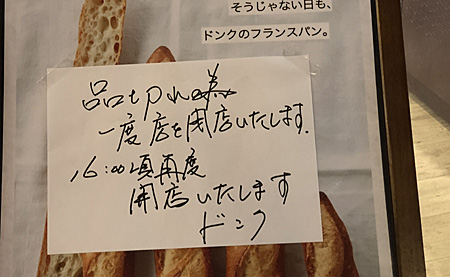 そうじゃない日も、
ドンクのフランスパン。
品切れの為
一度店を閉店いたします.
16:00頃再度
開店いたします
ドンク